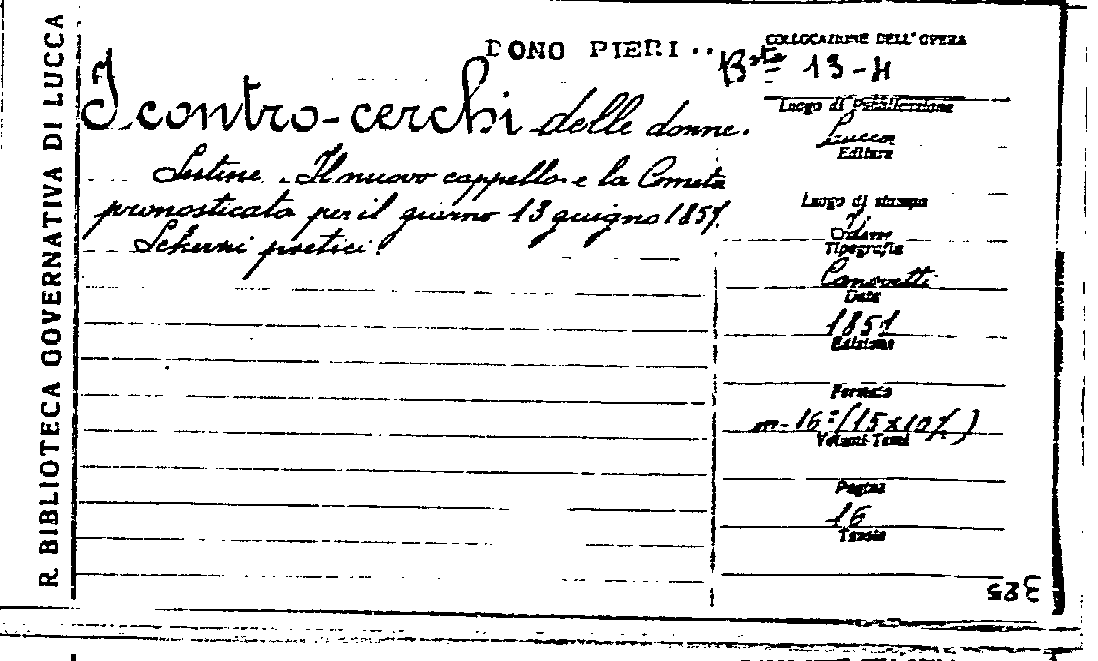 R. BIBLIOTECA GOVERNATIVA DI LUCCA
DONO PIERI..
I contro-cerchi delle donne.
Sestine. Il nuovo cappello e la Cometa
pronosticata per il giorno 13 guigno 1857.
Scherni poetici.
COLLOCAZIONE DELL'OPERA
Bta 13-H
Luogo di Pubblicazione
Lucca
Editore
Luogo di stampa
Tipografia
Canovetti
Data
1851
Edizione
Formato
in-16º (15x10½)
Volumi-Tomi
Pagine
16
Tavole
325